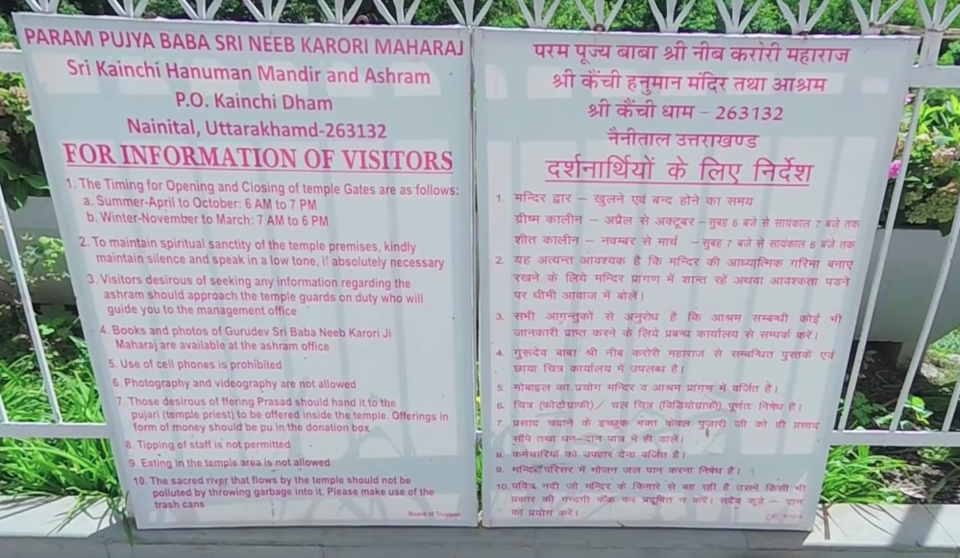 PARAM PUJYA BABA SRI NEEB KARORI MAHARAJ
Sri Kainchi Hanuman Mandir and Ashram
P.O. Kainchi Dham
Nainital, Uttarakhamd-263132
FOR INFORMATION OF VISITORS
1. The Timing for Opening and Closing of temple Gates are as follows:
a. Summer-April to October: 6 AM to 7 PM
b. Winter-November to March: 7 AM to 6 PM
2. To maintain spiritual sanctity of the temple premises, kindly
maintain silence and speak in a low tone, if absolutely necessary
3. Visitors desirous of seeking any information regarding the
ashram should approach the temple guards on duty who will
guide you to the management office
4. Books and photos of Gurudev Sri Baba Neeb Karori Ji
Maharaj are available at the ashram office
5. Use of cell phones is prohibited
6. Photography and videography are not allowed
7. Those desirous of ffering Prasad should hand it to the
pujari (temple priest) to be offered inside the temple. Offerings in
form of money should be pu in the donation box
8. Tipping of staff is not permitted
9. Eating in the temple area is not allowed
10. The sacred river that flows by the temple should not be
polluted by throwing garbage into it. Please make use of the
trash cans
Board of Trustees
परम पूज्य बाबा श्री नीब करोरी महाराज
श्री कैंची हनुमान मंदिर तथा आश्रम
श्री कैंची धाम - 263132
नैनीताल उत्तराखण्ड
दर्शनार्थियों के लिए निर्देश
1. मन्दिर द्वार – खुलने एवं बन्द होने का समय
ग्रीष्म कालीन – अप्रैल से अक्टूबर – सुबह 6 बजे से सायंकाल 7 बजे तक
शीत कालीन – नवम्बर से मार्च – सुबह 7 बजे से सायंकाल 6 बजे तक
2. यह अत्यन्त आवश्यक है कि मन्दिर की आध्यात्मिक गरिमा बनाए
रखने के लिये मन्दिर प्रांगण में शान्त रहें अथवा आवश्कता पडने
पर धीमी आवाज में बोलें।
3. सभी आगन्तुकों से अनुरोध है कि आश्रम सम्बन्धी कोई भी
जानकारी प्राप्त करने के लिये प्रबन्ध कार्यालय से सम्पर्क करें।
4. गुरूदेव बाबा श्री नीब करोरी महाराज से सम्बन्धित पुस्तकें एवं
छाया चित्र कार्यालय में उपलब्ध है।
5. मोबाइल का प्रयोग मन्दिर व आश्रम प्रांगण में वर्जित है।
6. चित्र (फोटोग्राफी)/ चल चित्र (विडियोग्राफी) पूर्णतः निषेध है।
7. प्रसाद चढाने के इच्छुक भक्त केवल पुजारी जी को ही प्रसाद
सौंपे तथा धन–दान पात्र में ही डालें।
8. कर्मचारियों को उपहार देना वर्जित है।
9. मन्दिर परिसर में भोजन जल पान करना निषेध है।
10. पवित्र नदी जो मन्दिर के किनारे से बह रही है उसमें किसी भी
प्रकार की गन्दगी फेंक कर प्रदूषित न करें। सदैव कूड़े – दान
का प्रयोग करें।